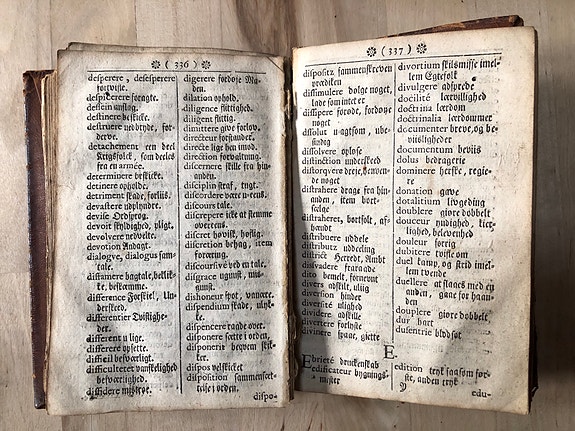 ( 336 )
desperere, desesperere
fortvivle.
despicerere foragte.
dessein anslag.
destinere beskicke.
destruere neddryde, for-
derve.
detachement een deel
Krigsfolck, som deeles
fra en armée.
determinere beskicke.
detinere opholde.
detriment skade, forliis.
devastere ødplyndre.
devise Ordsprog.
devoir skyldighed, pligt.
devolvere nedvelte.
devotion Andagt.
dialogve, dialogus sam-
tale.
diffamere bagtale, beklik-
ke, beskæmme.
difference Forskiel, Un-
derskeed,
differentier Tvistighe-
der.
different ulige.
differere opsette.
difficil besværligt.
difficulteter vanskelighed
besværlighed.
diffidere mistroe.
digerere fordøye Ma-
den.
dilation ophold.
diligence flittighed.
diligent flittig.
dimittere give forlov.
directeur forstander.
directe lige hen imod.
direction forvaltning.
discernere skille fra hin-
anden.
disciplin straf, tugt.
discordere være u-eens.
discours tale.
discrepere icke at stemme
overeens.
discret høvisk, høflig.
discretion behag, item
foræring.
discoursive ved en tale.
disgrace ugunst, mis-
gunst.
dishoneur spot, vanære.
dispendium skade, ulyk-
ke.
dispencere raade over.
disponere sætte i orden.
disponerit beqvem skik-
ket.
dispos velskicket
disposition sammenset-
telse i orden.
dispo-
( 337 )
dispositz sammenskreven
prædiken
dissimulere dølge noget,
lade som intet er
dissipere forøde, fordøye
noget
dissolut u-agtsom, ube-
standig
dissolvere opløse
distinction underskeed
distorqvere dreje, henven-
de noget
distrahere drage fra hin-
anden, item bort-
sælge
distraheret, bortsolt, af-
hændt
distribuere uddele
distributz uddeeling
district Herredt, Ambt
disvadere fraraade
dito bemelt, fornævnt
divers adskilt, ulig
diversion hinder
diversité ulighed
dividere adskille
divertere forlyste
divinere spaae, giette
divortium skilsmisse imel-
lem Egtefolk
divulgere adsprede
docilité lærvillighed
doctrina lærdom
doctrinalia lærdommer
documenter breve, og be-
viisligheder
documentum beviis
dolus bedragerie
dominere herske, regie-
re
donation gave
dotalitium livgeding
doublere giøre dobbelt
douceur yndighed, kier-
lighed, belevenhed
douleur sorrig
dubitere tvivle om
duel kamp, og strid imel-
lem tvende
duellere at slaaes med en
anden, gaae for haan-
den
douplere giøre dobbelt
dur hart
dusentrie blodsot
E.
Ebrieté druckenskab
edificateur bygnings-
mester
edition tryk saasom før-
ste, anden tryk
edu-